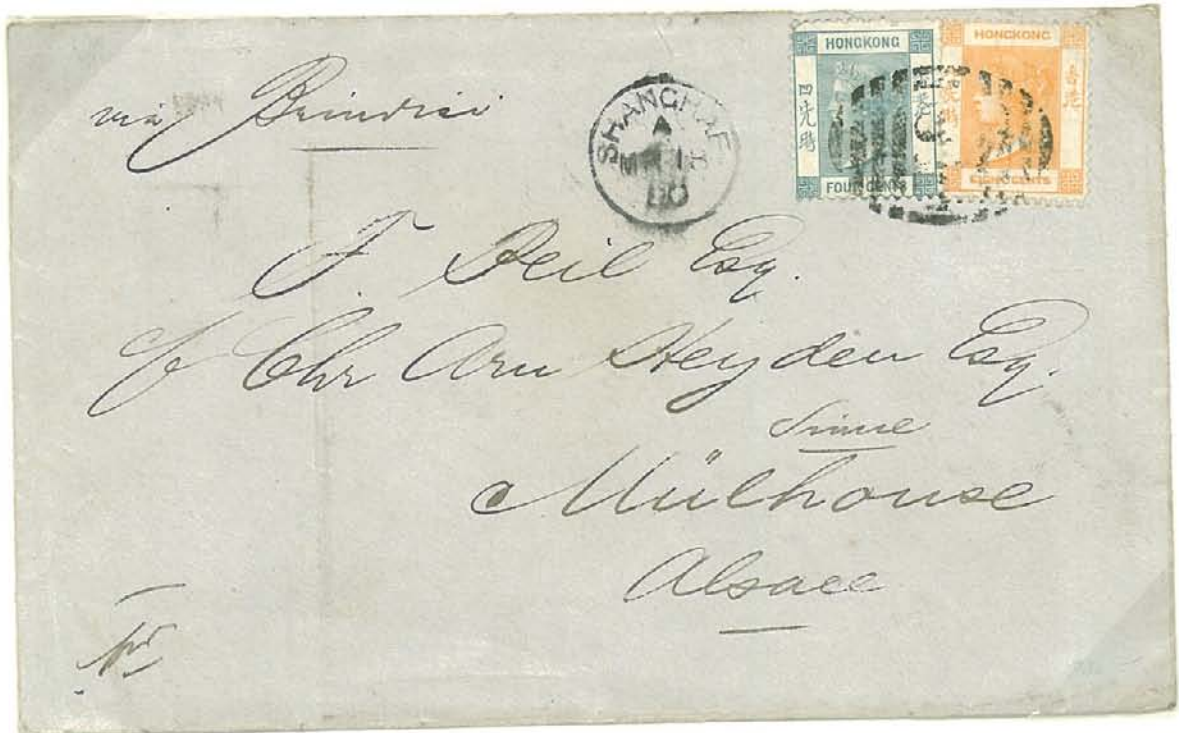 via Brindisi
SHANGHAE
A
80
HONGKONG
四先時
FOUR CENTS
HONGKONG
香港
EIGHT CENTS
Esq.
Chr Arn Heyden Esq.
Mülhouse
Alsace